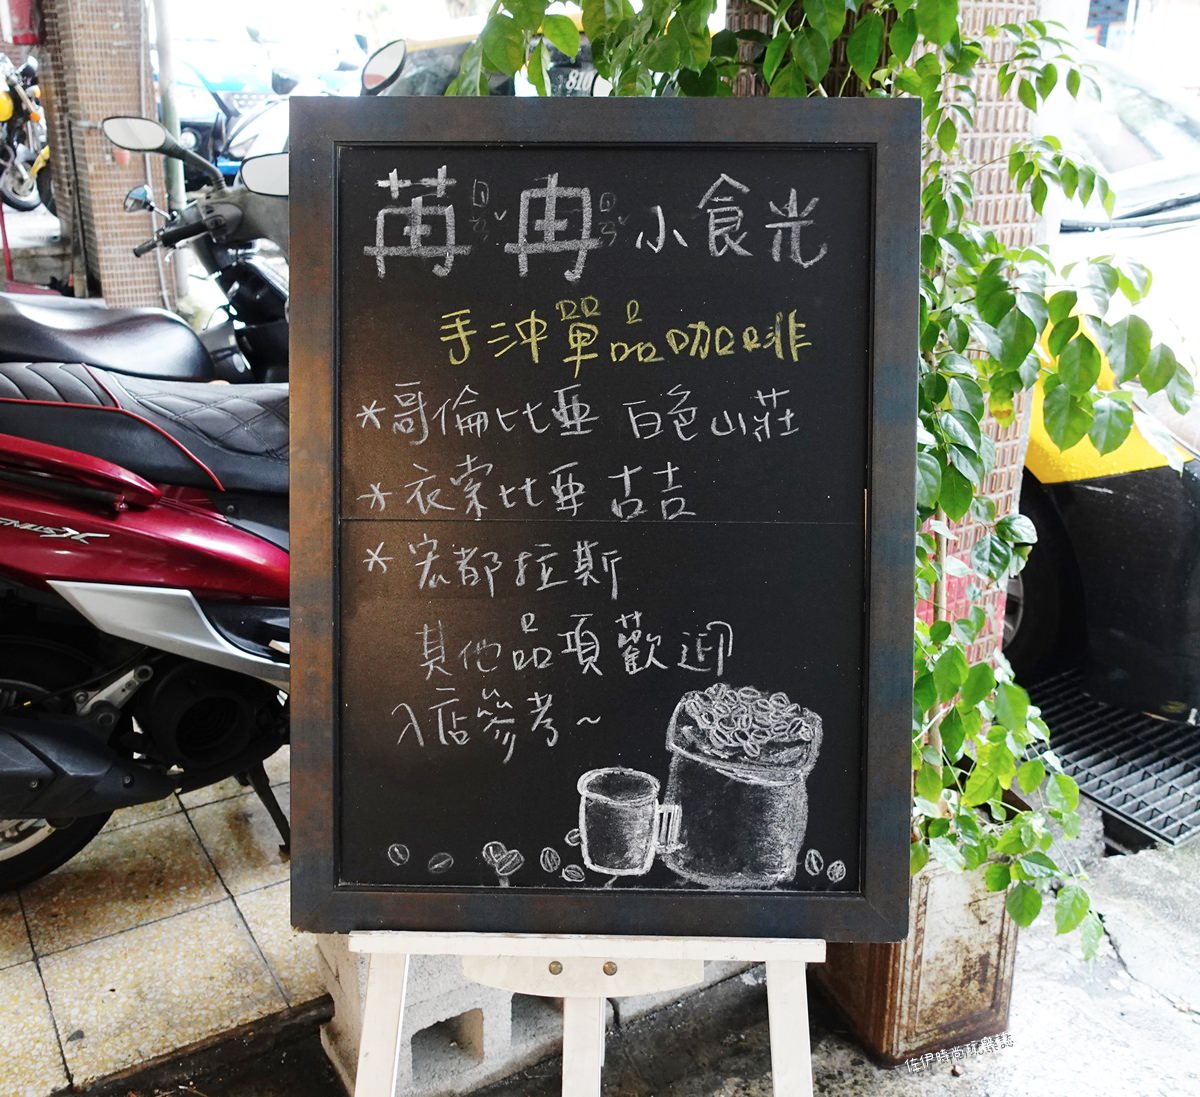 810
苒ㄖㄢˇ冉ㄖㄢˇ小食光
手沖單品咖啡
*哥倫比亞 白色山莊
*衣索比亞 古吉
*宏都拉斯
其他品項歡迎
入店參考~
佐伊時尚玩樂誌